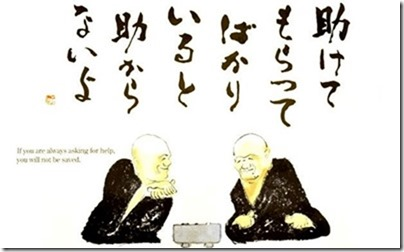 助けて
もらって
ばかり
いると
助から
ないよ
If you are always asking for help,
you will not be saved.